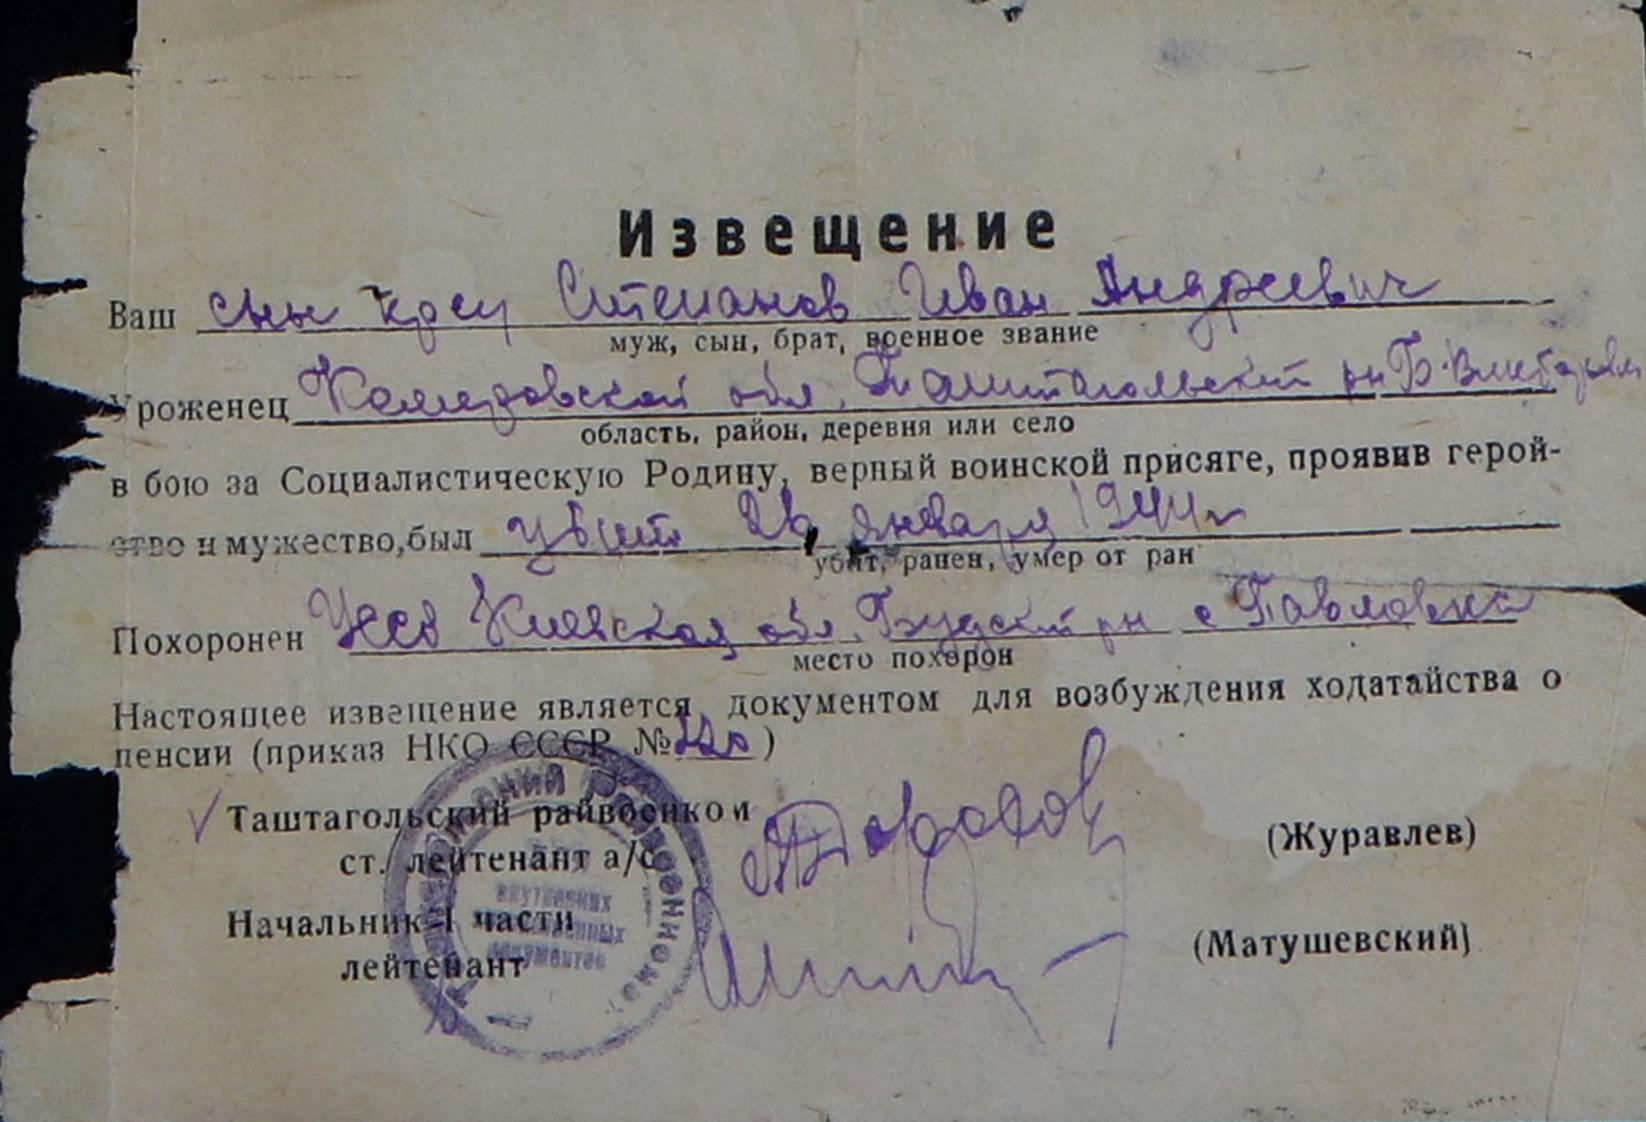 Извещение
Ваш сын кр-ец Степанов Иван Андреевич
муж, сын, брат, военное звание
Уроженец Кемеровской обл. Таштагольский рн
область, район, деревня или село
в бою за Социалистическую Родину, верный воинской присяге, проявив герой-
ство и мужество, был убит 26 января 1944 г
убит, ранен, умер от ран
Похоронен УССР Киевская обл. рн с Павловка
место похорон
Настоящее извещение является документом для возбуждения ходатайства о
пенсии (приказ НКО СССР №)
Таштагольский райвоенком
ст. лейтенант а/с (Журавлев)
Начальник 1 части
лейтенант (Матушевский)
внутренних
документов